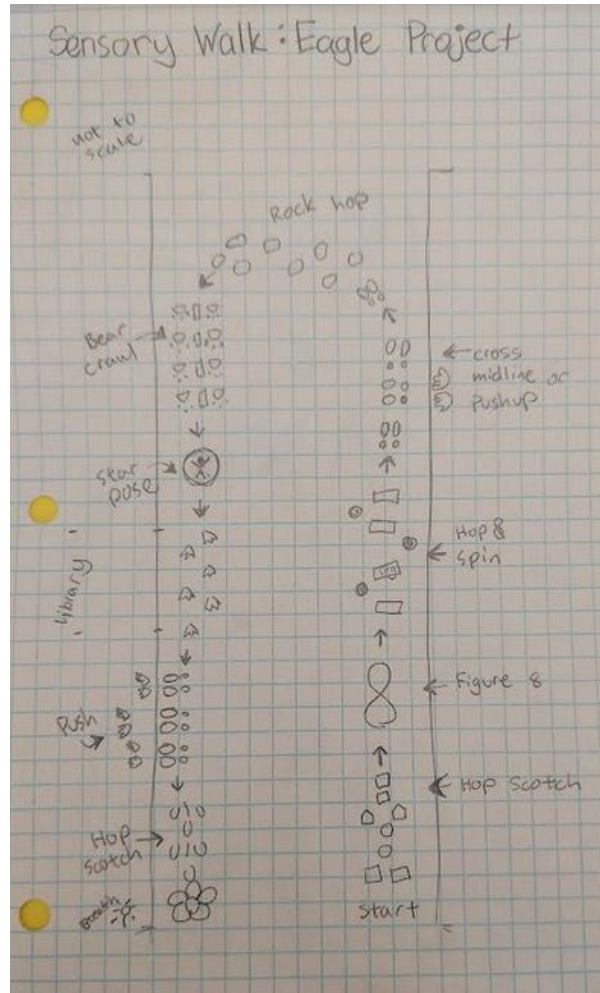 Sensory Walk: Eagle Project
not to
scale
Rock hop
Bear
crawl
cross
midline or
pushup
star
pose
Hop &
spin
Library
Figure 8
Push
Hop Scotch
Hop
scotch
Breath
start